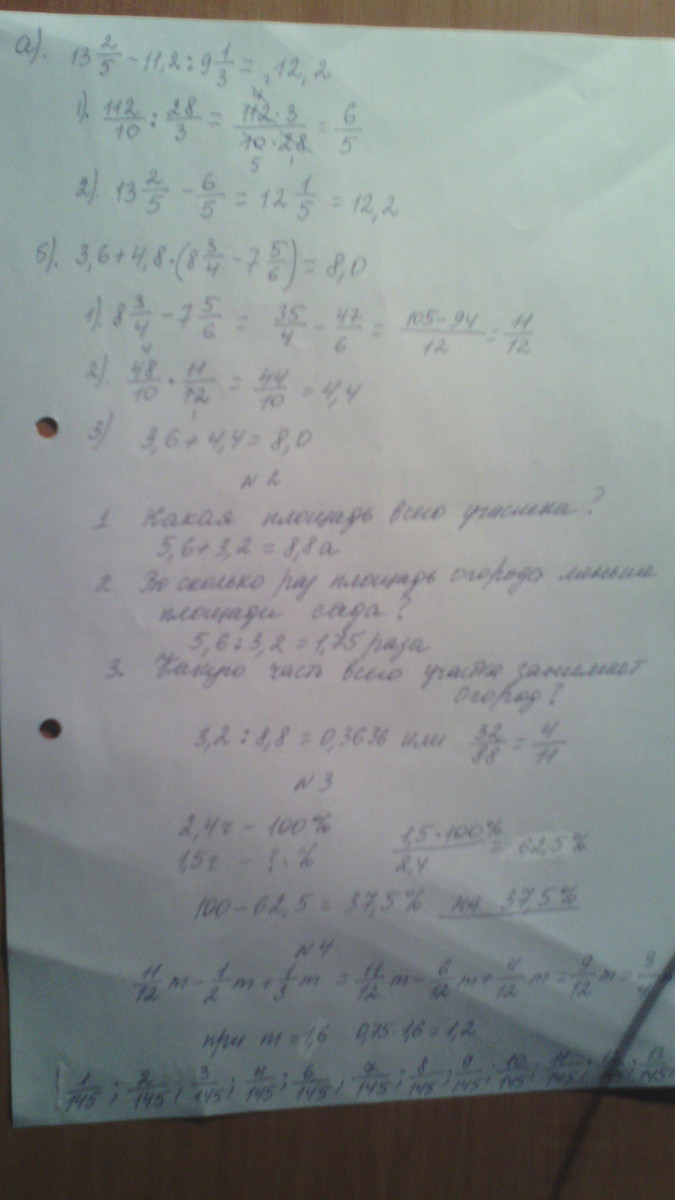 а). 13 2/5 - 11,2 : 9 1/3 = 12,2
1). 112/10 : 28/3 = 112·3/10·28 = 6/5
2). 13 2/5 - 6/5 = 12 1/5 = 12,2
б). 3,6 + 4,8 · (8 3/4 - 7 5/6) = 8,0
1). 8 3/4 - 7 5/6 = 35/4 - 47/6 = 105-94/12 = 11/12
2). 48/10 · 11/12 = 44/10 = 4,4
3) 3,6 + 4,4 = 8,0
N 2
1 Какая площадь всего участка?
5,6 + 3,2 = 8,8 а
2. Во сколько раз площадь огорода меньше
площади сада?
5,6 : 3,2 = 1,75 раза
3. Какую часть всего участка занимает
огород?
3,2 : 8,8 = 0,3636 или 32/88 = 4/11
N 3
2,4 ч - 100% 1,5·100%/2,4 = 62,5%
1,5 ч - ? %
100 - 62,5 = 37,5% на 37,5%
N 4
11/12 m - 1/2 m + 1/3 m = 11/12 m - 6/12 m + 4/12 m = 9/12 m = 3/4
при m = 1,6 0,75·1,6 = 1,2
1/145 ; 2/145 ; 3/145 ; 4/145 ; 6/145 ; 7/145 ; 8/145 ; 9/145 ; 10/145 ; 11/145 ; 12/145 ; 13/145